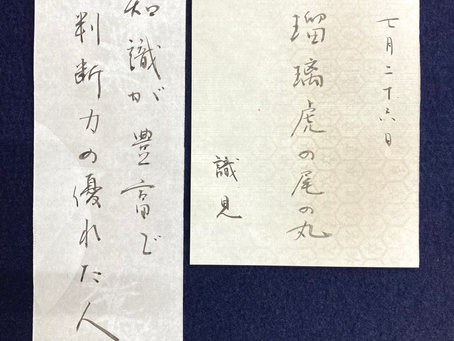 七月二十六日
瑠璃虎の尾の丸
識見
知識が豊富で
判断力の優れた人